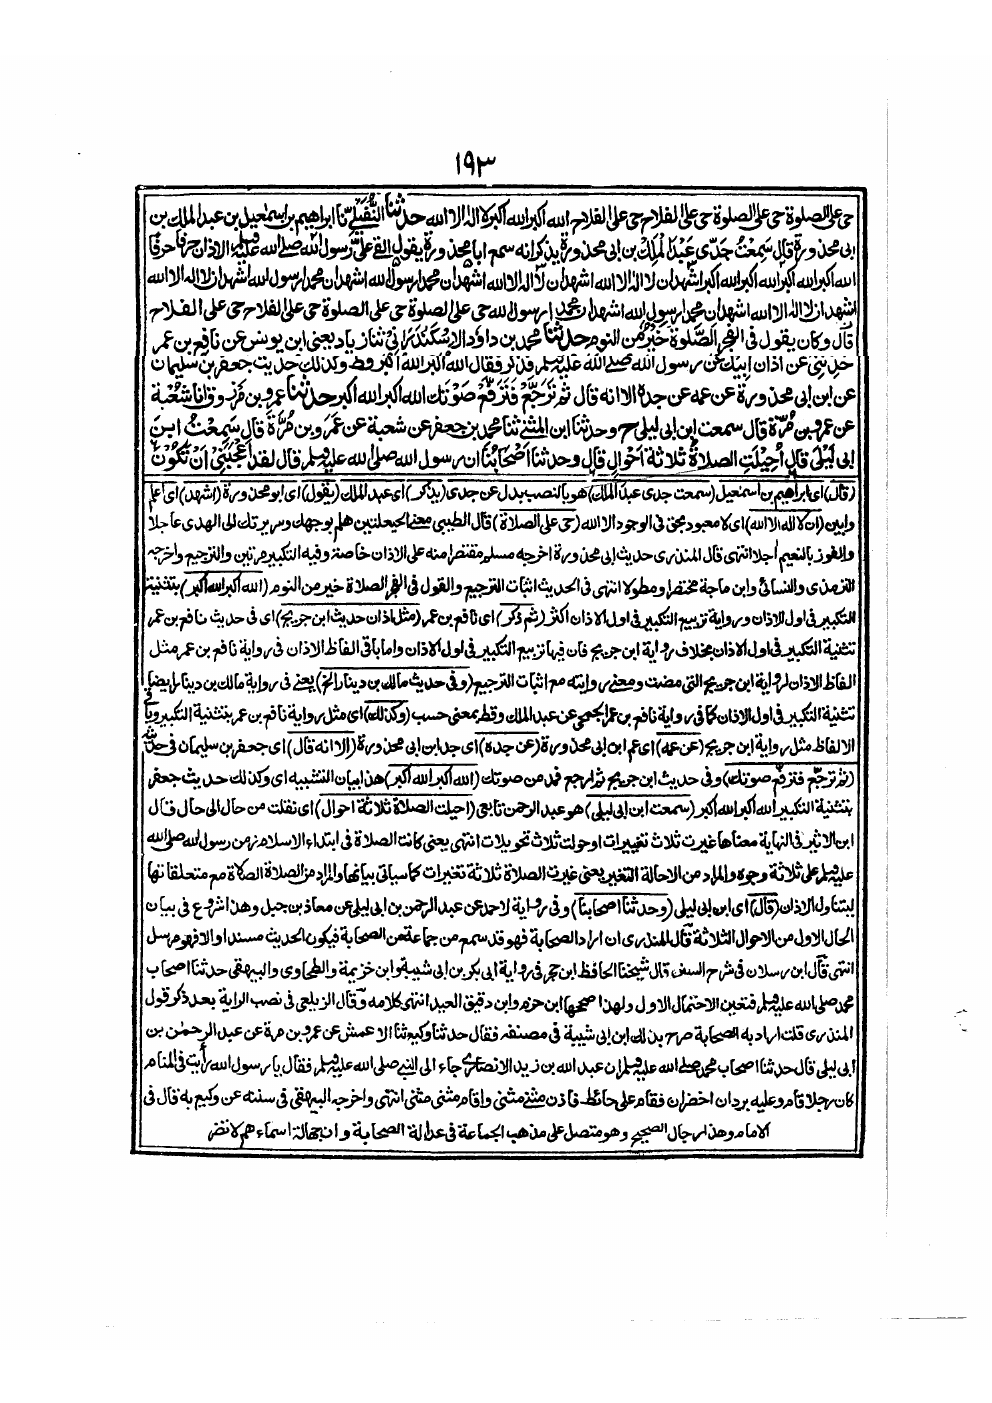 ١٩٣
حى على الصلوة حى على الصلوة حى على الفلاح حى على الفلاح الله اكبر الله اكبر لا اله الا الله حدثنا النُّفَيْلِىُّ نا ابراهيم بن اسمٰعيل بن عبد الملك بن
ابى محذورة قال سَمِعْتُ جَدّى عَبْدَ الملِكِ بن ابى محذورة يذكرانه سمع ابا محذورة يقول القى علىَّ رسول الله صلى الله عليه وسلم الاذان حرفا حرفًا
الله اكبر الله اكبر الله اكبر الله اكبر اشهد ان لا اله الا الله اشهد ان لا اله الا الله اشهد ان محمدا رسول الله اشهد ان محمدا رسول الله اشهد ان لا اله الا الله
اشهد ان لا اله الا الله اشهد ان محمدا رسول الله اشهد ان محمدا رسول الله حى على الصلوة حى على الصلوة حى على الفلاح حى على الفلاح
قال وكان يقول فى الفجر الصَّلوةُ خَيْرٌ من النوم حدثنا محمد بن داؤد الاسْكَنْدَرَانِىُّ ثنا زياد يعنى ابن يونس عن نافع بن عمر
عن ابن ابى محذورة عن عمه عن جده الا انه قال ثم تَرَجَّعْ فَتَرَفَّعْ صَوْتَك الله اكبر الله اكبر حدثنا عمرو بن مَرْزوق انا شعْبة
عن عمرو بن مُرّة قال سمعت ابن ابى ليلى ح وحدثنا ابن المثنى ثنا محمد بن جعفر عن شعبة عن عَمْرو بن مُرَّةَ قال سَمِعْتُ ابنَ
ابى لَيْلَىٰ قال اُحِيلَتِ الصلاةُ ثلاثة اَحْوَالٍ قال وحدثنا اَصْحَابُنَا ان رسول الله صلى الله عليه وسلم قال لقد اَعْجَبَنِىْ اَنْ تَكُوْنَ
(قال) اى ابراهيم بن اسمعيل (سمعت جدى عبد الملك) هو بالنصب بدل عن جدى (يذكر) اى عبد الملك (يقول) اى ابو محذورة (اشهد) اى اعلم
وابين (ان لا اله الا الله) اى لا معبود بحق فى الوجود الا الله (حى على الصلاة) قال الطيبى معنى الحيعلتين هلم بوجهك وسريرتك الى الهدى عاجلا
والفوز بالنعيم اٰجلا انتهى قال المنذرى حديث ابى محذورة اخرجه مسلم مقتصرا منه على الاذان خاصة وفيه التكبير مرتين والترجيع واخرجه
الترمذى والنسائى وابن ماجة مختصرا ومطولا انتهى فى الحديث اثبات الترجيع والقول فى الفجر الصلاة خير من النوم (الله اكبر الله اكبر) بتثنية
التكبير فى اول الاذان ورواية تربيع التكبير فى اول الاذان اكثر (ثم ذكر) اى نافع بن عمر (مثل اذان حديث ابن جريج) اى فى حديث نافع بن عمر
تثنية التكبير فى اول الاذان بخلاف رواية ابن جريج فان فيها تربيع التكبير فى اول الاذان واما باقى الفاظ الاذان فى رواية نافع بن عمر مثل
الفاظ الاذان لرواية ابن جريج التى مضت ومعنى روايته مع اثبات الترجيع (وفى حديث مالك بن دينار الخ) يعنى فى رواية مالك بن دينار ايضا
تثنية التكبير فى اول الاذان كما فى رواية نافع بن عمر الجمحى عن عبد الملك وقط بمعنى حسب (وكذلك) اى مثل رواية نافع بن عمر بتثنية التكبير وباقى
الالفاظ مثل رواية ابن جريج (عن عمه) اى عم ابن ابى محذورة (عن جده) اى جد ابن ابى محذورة (الا انه قال) اى جعفر بن سليمان فى حديثه
(ثم ترجع فترفع صوتك) وفى حديث ابن جريج ثم ارجع فمد من صوتك (الله اكبر الله اكبر) هذا بيان التشبيه اى وكذلك حديث جعفر
بتثنية التكبير الله اكبر الله اكبر (سمعت ابن ابى ليلى) هو عبد الرحمن تابعى (احيلت الصلاة ثلاثة احوال) اى نقلت من حال الى حال قال
ابن الاثير فى النهاية معناها غيرت ثلاث تغييرات او حولت ثلاث تحويلات انتهى يعنى كانت الصلاة فى ابتداء الاسلام زمن رسول الله صلى الله
عليه وسلم على ثلاثة وجوه والمراد من الاحالة التغير يعنى غيرت الصلاة ثلاثة تغيرات كما سياتى بيانها والمراد من الصلاة الصلاة مع متعلقاتها
ليتناول الاذان (قال) اى ابن ابى ليلى (وحدثنا اصحابنا) وفى رواية لاحمد عن عبد الرحمن بن ابى ليلى عن معاذ بن جبل وهذا شروع فى بيان
الحال الاول من الاحوال الثلاثة قال المنذرى ان اراد الصحابة فهو قد سمع من جماعة من الصحابة فيكون الحديث مسندا والا فهو مرسل
انتهى قال ابن رسلان فى شرح السنن قال شيخنا الحافظ ابن حجر فى رواية ابى بكر بن ابى شيبة وابن خزيمة والطحاوى والبيهقى حدثنا اصحاب
محمد صلى الله عليه وسلم فتعين الاحتمال الاول ولهذا صححها ابن حزم وابن دقيق العيد انتهى كلامه وقال الزيلعى فى نصب الراية بعد ذكر قول
المنذرى قلت اراد به الصحابة صرح بذلك ابن ابى شيبة فى مصنفه فقال حدثنا وكيع ثنا الاعمش عن عمرو بن مرة عن عبد الرحمٰن بن
ابى ليلى قال حدثنا اصحاب محمد صلى الله عليه وسلم ان عبد الله بن زيد الانصارى جاء الى النبى صلى الله عليه وسلم فقال يا رسول الله رأيت فى المنام
كان رجلا قام وعليه بردان اخضران فقام على حائط فاذن مثنى مثنى واقام مثنى مثنى انتهى واخرجه البيهقى فى سننه عن وكيع به قال فى
الامام وهذا رجال الصحيح وهو متصل على مذهب الجماعة فى عدالة الصحابة وان جهالة اسماءهم لا تضر